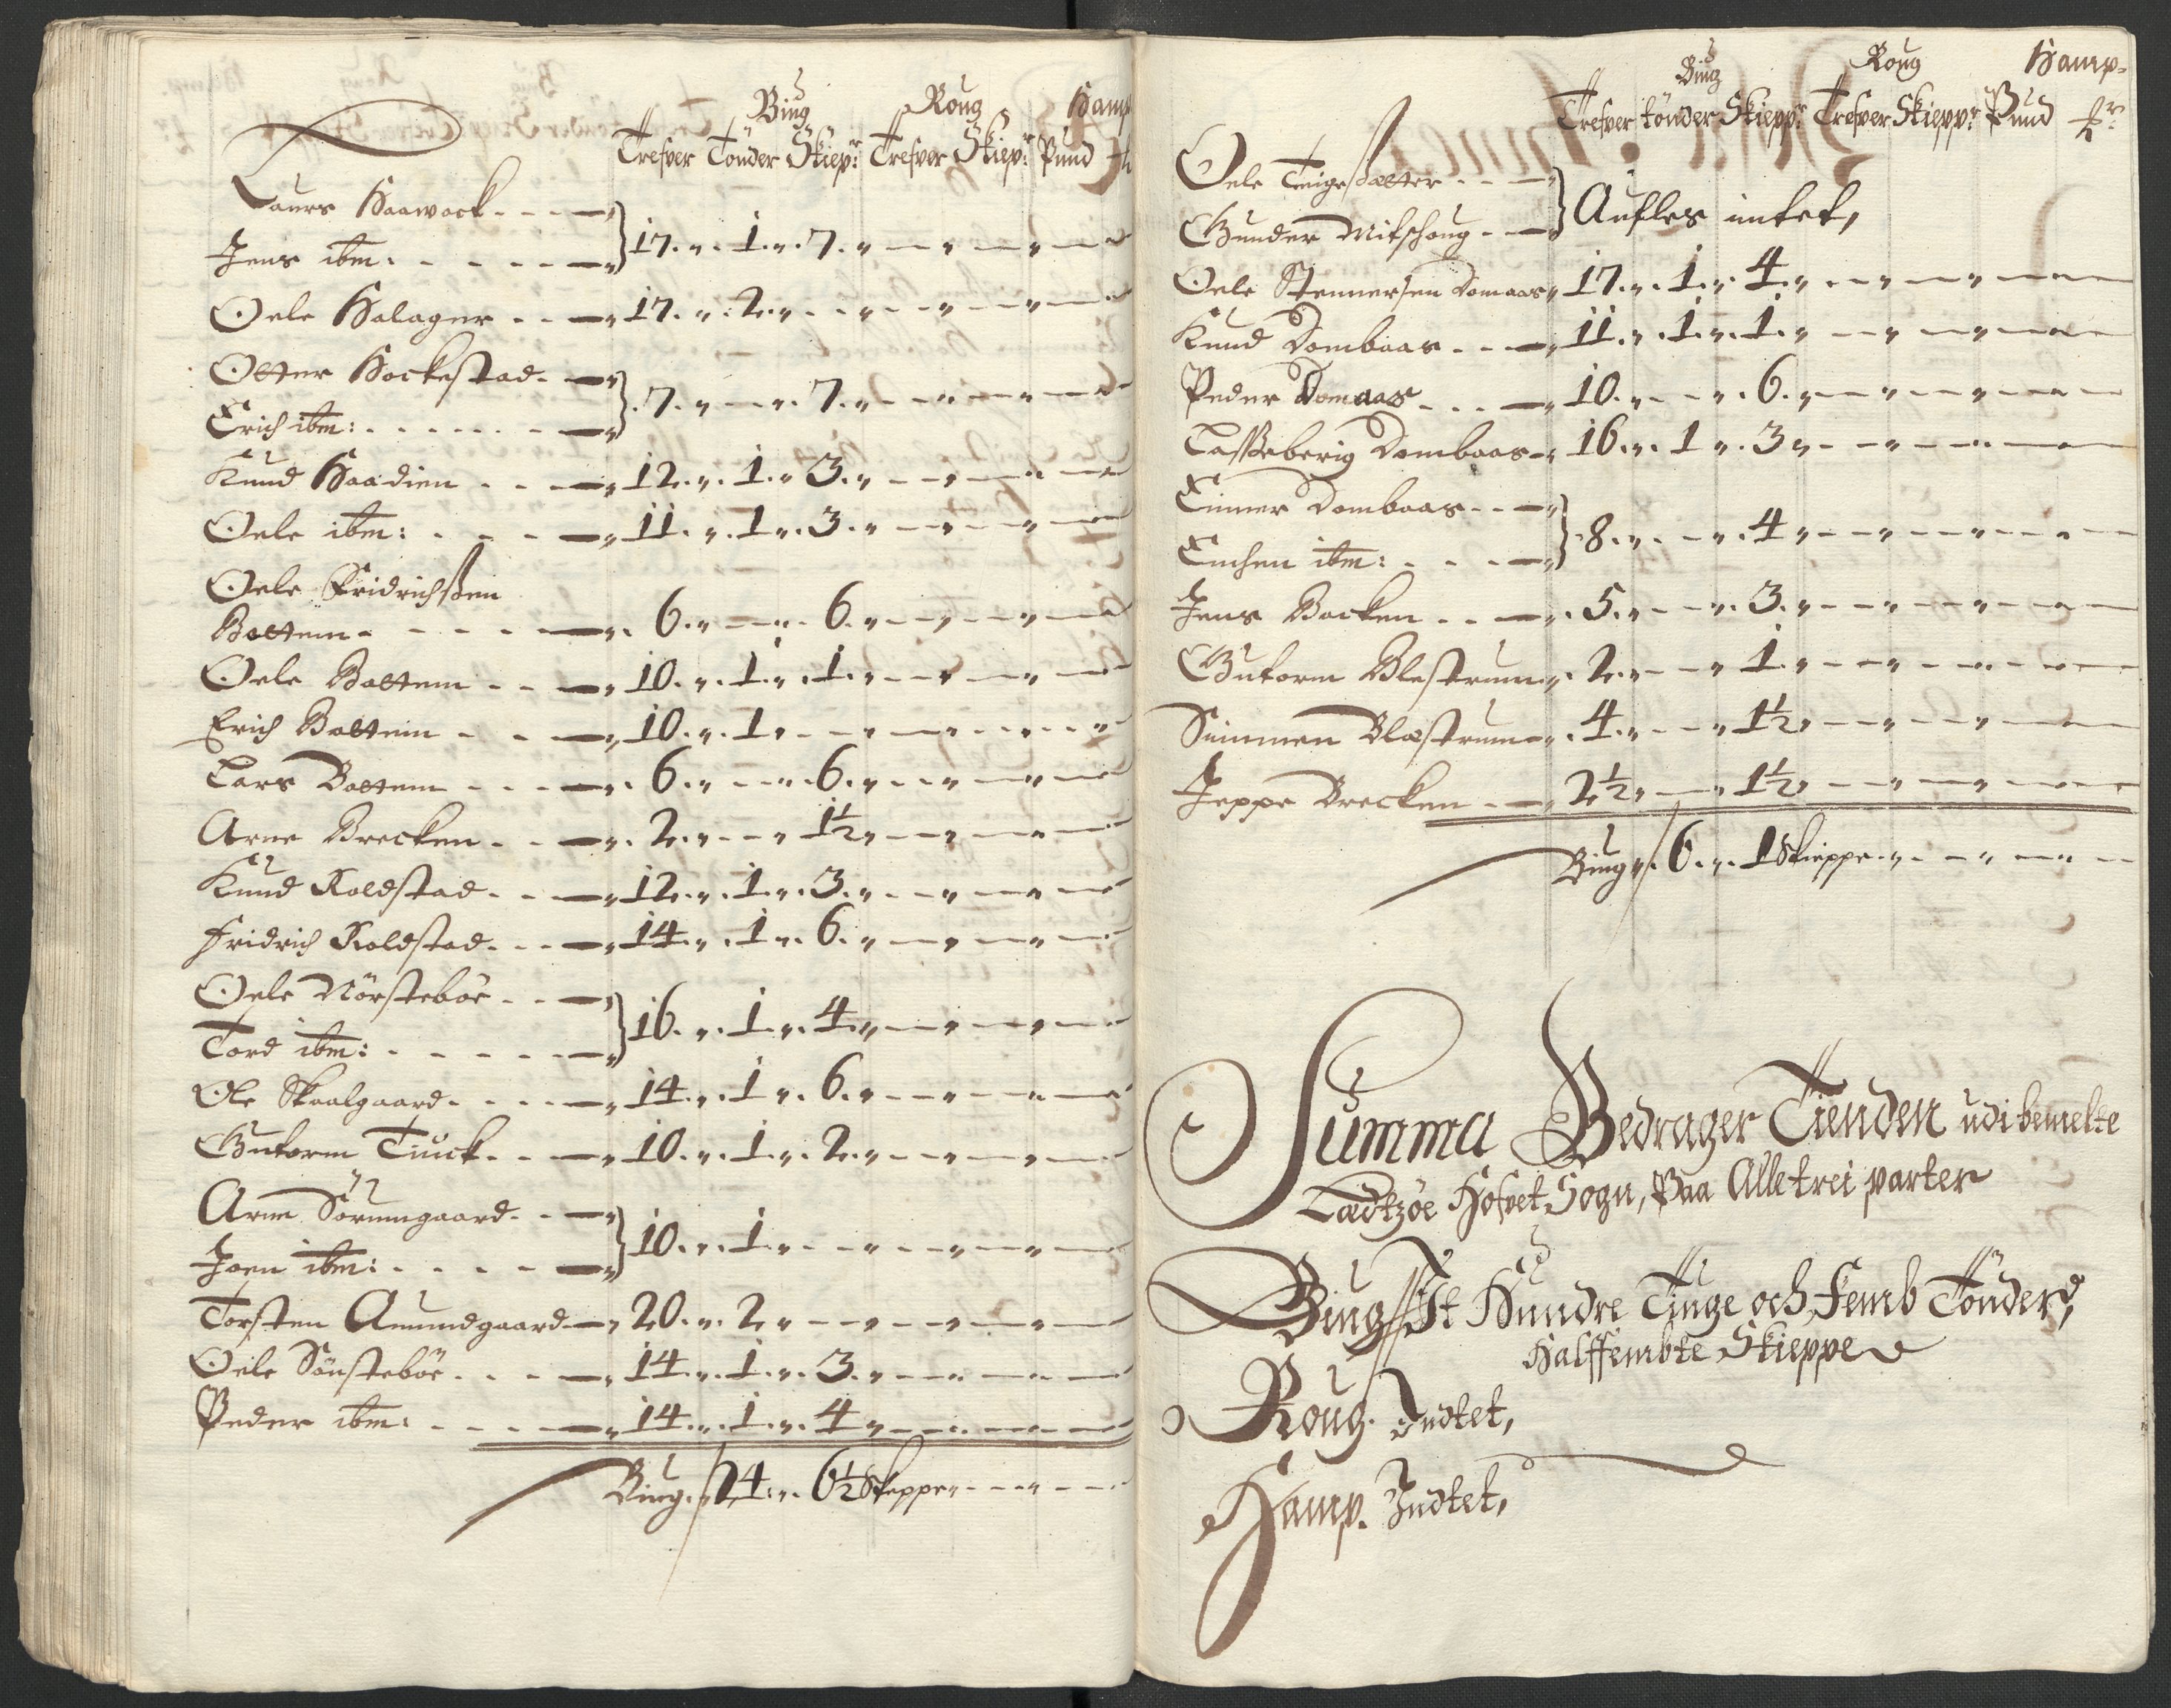 Biug Roug Hamp
Trefver Tönder Skiepr: Trefver Skiepr: Pund
Laurs Haawack - - - 17. 1. 7.
Jens ibm: - - -
Oele Halager - - 17. 2.
Otter Hockestad - 7. 7.
Erich ibm: - - -
Knud Haadien - - - 12. 1. 3.
Oele ibm: - - - 11. 1. 3.
Oele Fridrichßen
Bottem - - - 6. 6.
Oele Bottem - - - 10. 1. 1.
Erich Bottem - - 10. 1.
Lars Bottem - - - 6. 6.
Arne Brecken - - 2. 1½
Knud Koldstad - - 12. 1. 3.
Fridrich Koldstad - - 14. 1. 6.
Oele Nörsteböe - - 16. 1. 4.
Tord ibm: - - -
Ole Skaalgaard - - - 14. 1. 6.
Gutorm Tiuck - - 10. 1. 2.
Arne Sörumgaard - - 10. 1.
Joen ibm: - - -
Torsten Amundgaard - 20. 2.
Oele Sönsteböe - - - 14. 1. 3.
Peder ibm: - - - 14. 1. 4
Biug. 24. 6½ Skeppe
Biug Roug Hamp
Trefver tönder Skiepr: Trefver Skieppr: Pund
Oele - - - Aufler intet,
Gunder - -
Oele Stennersen Domaas 17. 1. 4.
Knud Dombaas - - 11. 1. 1.
Peder Domaas - - - 10. 6.
Laßeberig Dombaas - 16. 1 3
Einner Dombaas - - 8. 4
Enchen ibm: - - -
Jens Backen - - 5. 3.
Gutorm Blestrum 2. 1.
Simmen Blæstrum 4. 1½
Jeppe Brecken - 2½ 1½
Biug 6. 1 Skieppe
Summa Bedrager Tienden udi bemelte
Ladtzöe Hofvet Sogn, Paa Alle trei parter
Biug It Hundre Tiuge och Femb Tönder,
Halffembte Skieppe
Roug. Indtet,
Hamp. Indtet,